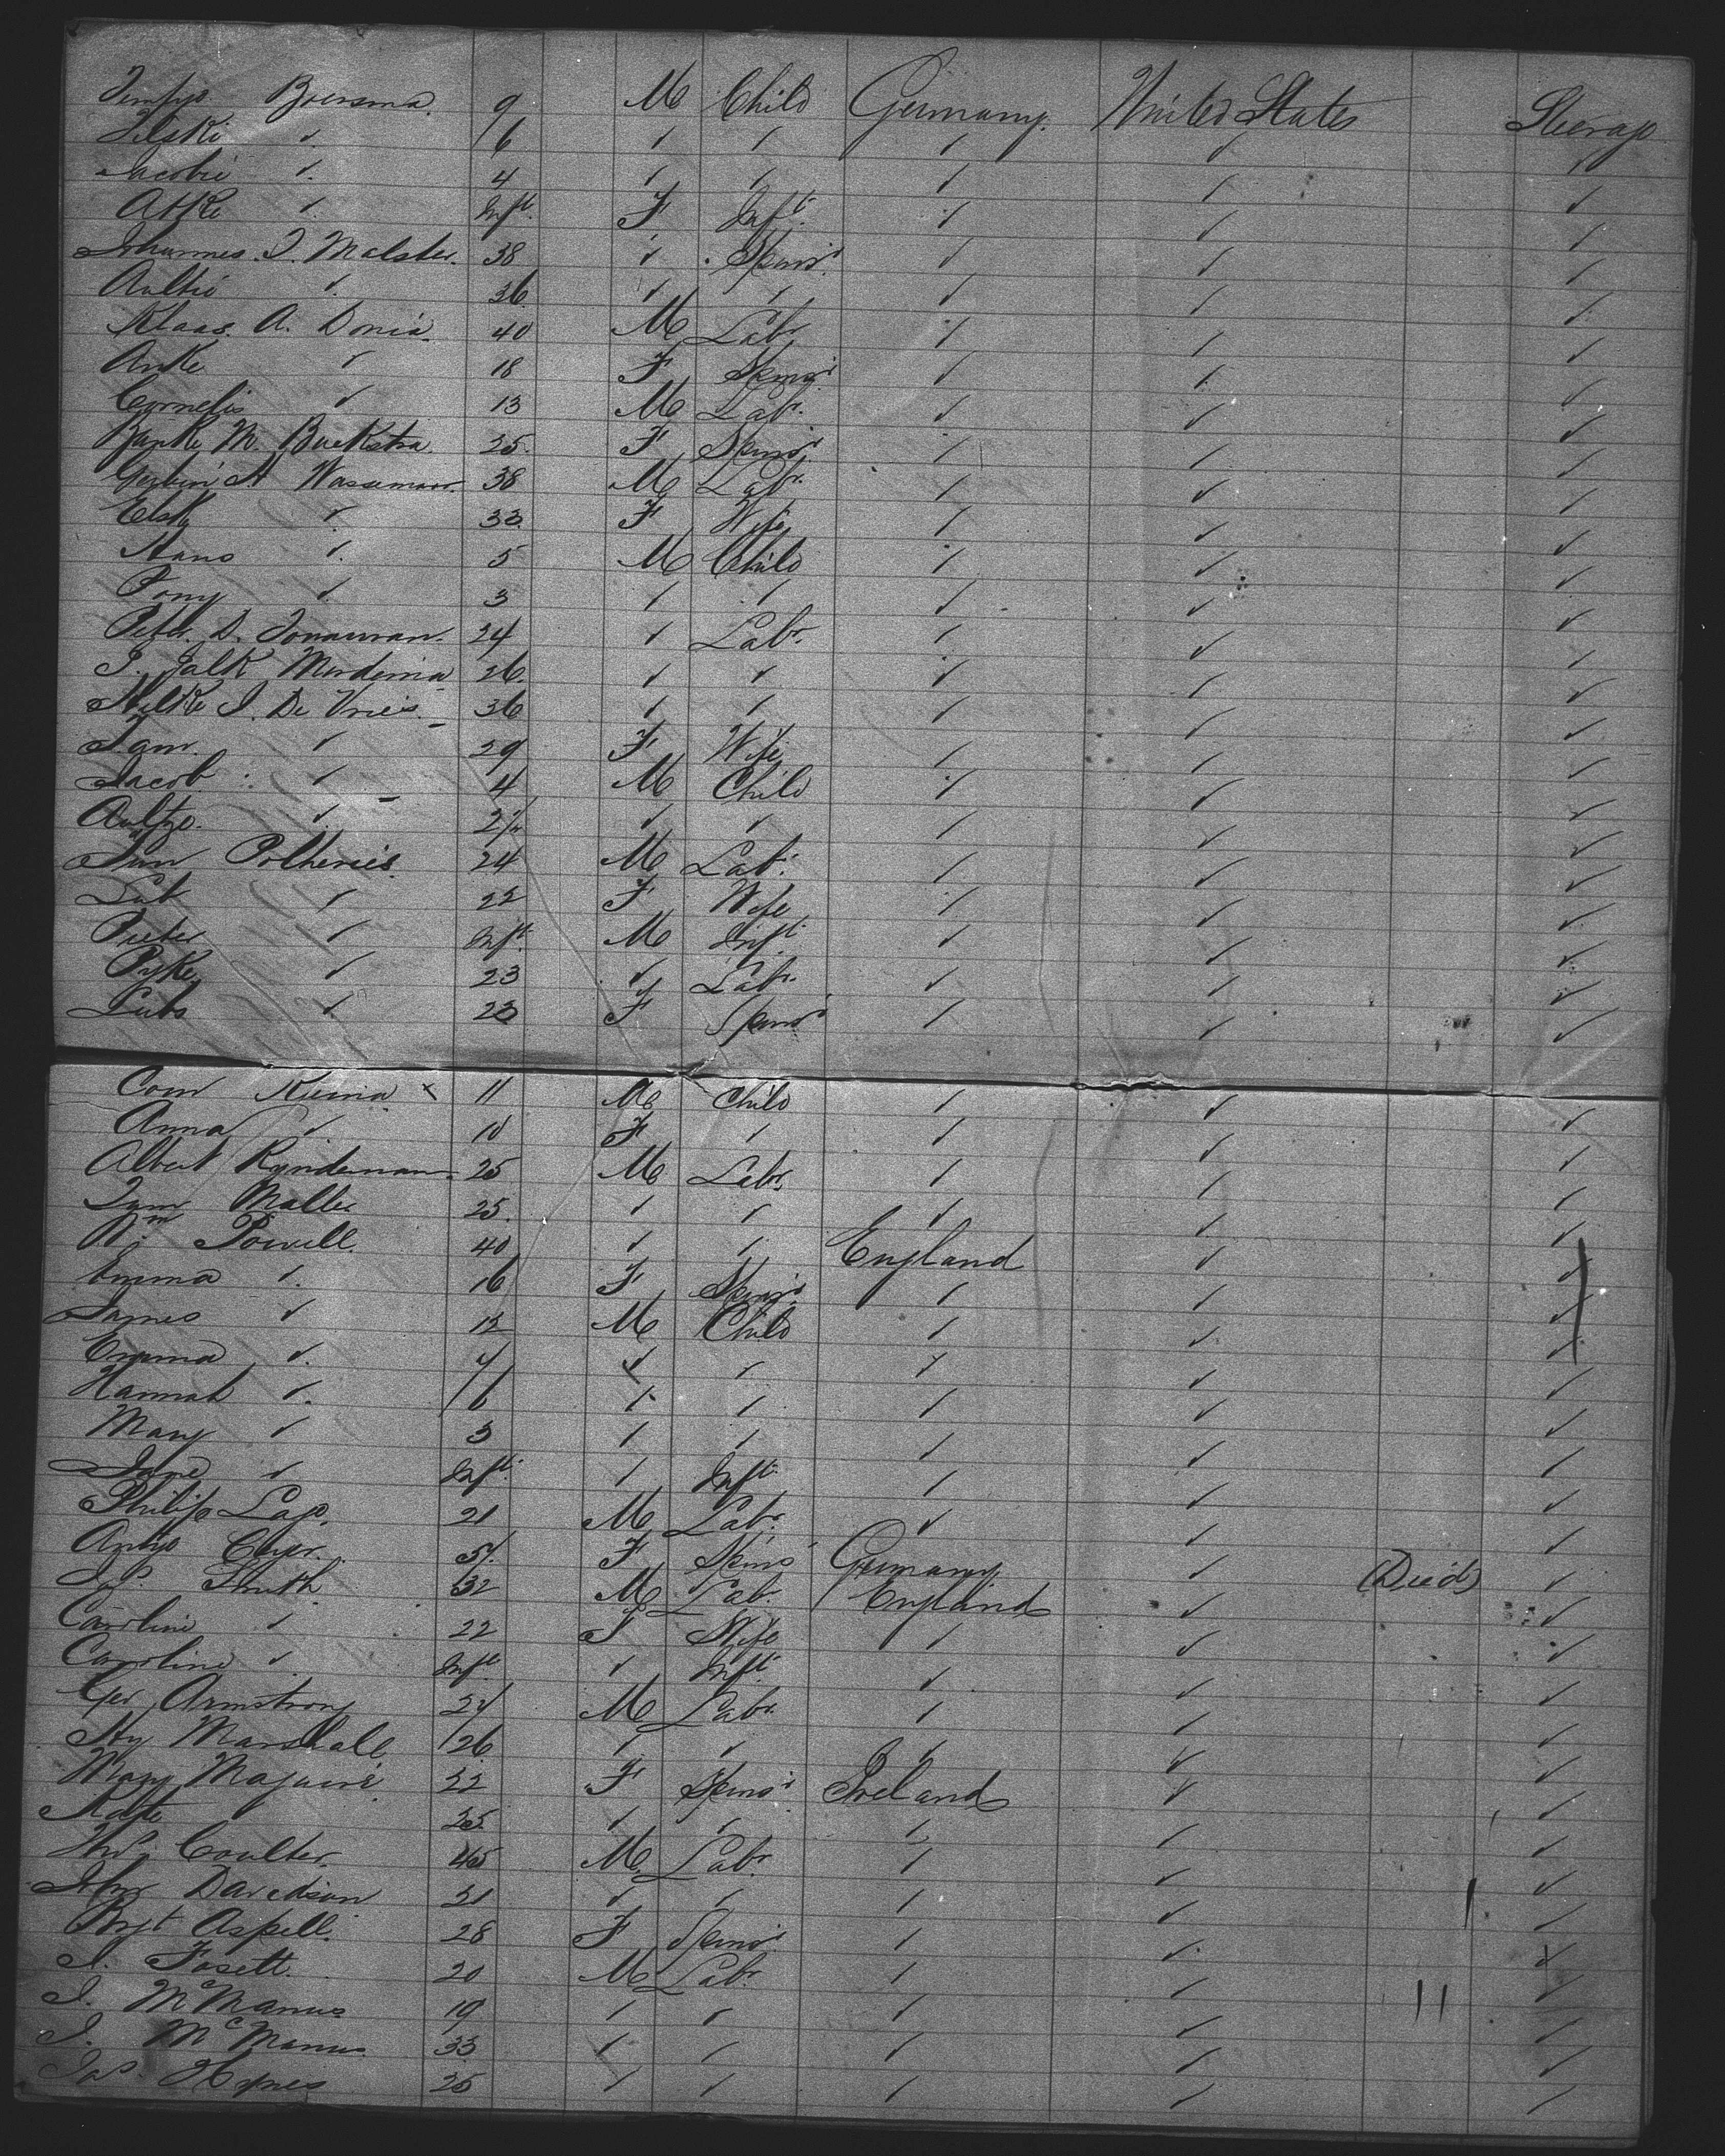 Boersma 9 M Child Germany United States Steerage
6 ✓ ✓ ✓ ✓ ✓
Jacobie ✓ 4 ✓ ✓ ✓ ✓ ✓
Atke ✓ Inft. F Inft. ✓ ✓ ✓
Johannes. J. Molster. 38 ✓ Spinsr ✓ ✓ ✓
Aultie ✓ 36 ✓ ✓ ✓ ✓ ✓
Klaas. A. Donia. 40 M Labr ✓ ✓ ✓
Anke ✓ 18 F Spinsr ✓ ✓ ✓
Cornelis ✓ 13 M Labr. ✓ ✓ ✓
M. Buekstra 25. F Spinsr ✓ ✓ ✓
A Wassemaar. 38 M Labr. ✓ ✓ ✓
Elsk ✓ 33. F Wife ✓ ✓ ✓
Hans ✓ 5 M Child ✓ ✓ ✓
Pony ✓ 3 ✓ ✓ ✓ ✓ ✓
Peter. D. 24 ✓ Labr. ✓ ✓ ✓
J. Jalk 26. ✓ ✓ ✓ ✓ ✓
J. De Vries. 36 ✓ ✓ ✓ ✓ ✓
Jam. ✓ 29 F Wife ✓ ✓ ✓
Jacob ✓ 4 M Child ✓ ✓ ✓
Aultze. ✓ ✓ ✓ ✓ ✓ ✓
Polhenies. 24 M Labr. ✓ ✓ ✓
Lub ✓ 22 F Wife ✓ ✓ ✓
Pieter ✓ Inft. M Inft. ✓ ✓ ✓
Pyke ✓ 23 ✓ Labr. ✓ ✓ ✓
Lubs ✓ 23 F Spinsr ✓ ✓ ✓
Coon Kuma × 11 M Child ✓ ✓ ✓
Anna ✓ 10 F ✓ ✓ ✓ ✓
Albert Ryndeman. 25 M Labr. ✓ ✓ ✓
Maller 25. ✓ ✓ ✓ ✓ ✓
Wm Powell. 40 ✓ ✓ England ✓ ✓
Emma ✓ 16 F Spinsr ✓ ✓ ✓
James ✓ 12 M Child ✓ ✓ ✓
Emma ✓ 7 ✓ ✓ ✓ ✓ ✓
Hannah ✓ 6 ✓ ✓ ✓ ✓ ✓
Mary ✓ 3 ✓ ✓ ✓ ✓ ✓
Jane ✓ Inft. ✓ Inft. ✓ ✓ ✓
Philip 21 M Labr. ✓ ✓ ✓
Antje F Spinsr Germany ✓ (Died) ✓
Jas. Smith 32 M Labr. England ✓ ✓
Caroline ✓ 22 F Wife ✓ ✓ ✓
Caroline ✓ Inft ✓ Inft. ✓ ✓ ✓
Geo Armstrong 24 M Labr. ✓ ✓ ✓
Hy Marshall 26 ✓ ✓ ✓ ✓ ✓
Mary Maguire 22 F Spinsr Ireland ✓ ✓
Kate ✓ 25 ✓ ✓ ✓ ✓ ✓
Coulter. 45 M Labr ✓ ✓ ✓
Jno Davidson 21 ✓ ✓ ✓ ✓ ✓
Brgt Aspell. 28 F Spinsr ✓ ✓ ✓
J. Fosett. 20 M Labr ✓ ✓ ✓
J. McManus 19 ✓ ✓ ✓ ✓ ✓
J. McManus 33 ✓ ✓ ✓ ✓ ✓
Jas. Hynes 25 ✓ ✓ ✓ ✓ ✓